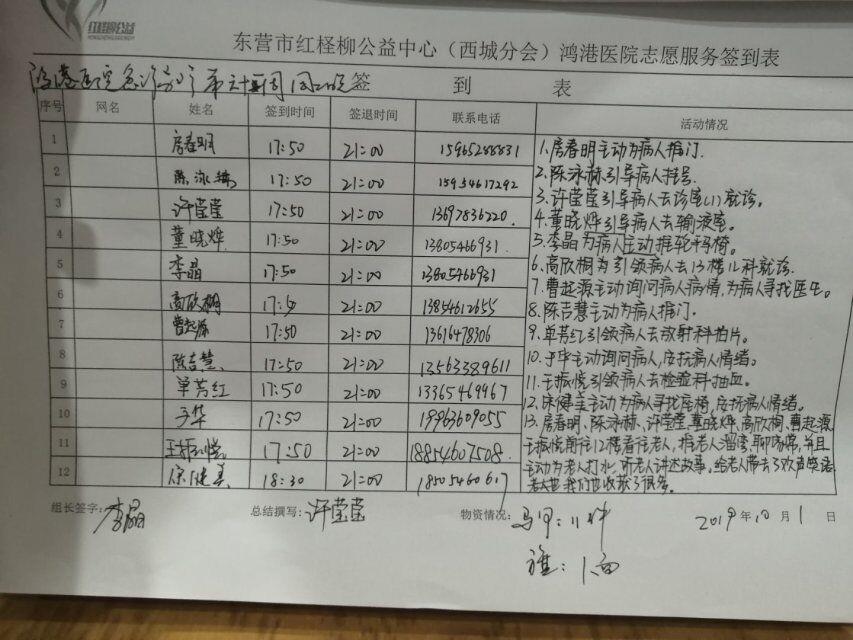 红柽柳公益
东营市红柽柳公益中心（西城分会）鸿港医院志愿服务签到表
签 到 表
序号 网名 姓名 签到时间 签退时间 联系电话 活动情况
1 房春明 17:50 21:00 15965288831
2 陈泳赫 17:50 21:00 15954617292
3 许莹莹 17:50 21:00 13697836220.
4 董晓烨 17:50 21:00 13805466931.
5 李晶 17:50 21:00 13805466931
6 高欣桐 17:50 21:00 13854612655
7 曹起源 17:50 21:00 13616478306
8 陈吉慧 17:50 21:00 13563389611
9 单芳红 17:50 21:00 13365469967
10 于华 17:50 21:00 19963609055
11 王振悦 17:50 21:00 18854607508.
12 宋健美 18:30 21:00 18505460617
1.房春明主动为病人推门.
2.陈泳赫引导病人挂号.
3.许莹莹引导病人去诊室(1)就诊。
4.董晓烨引导病人去输液室。
5.李晶为病人主动推轮椅。
6.高欣桐为引领病人去13楼儿科就诊.
7.曹起源主动询问病人病情,为病人寻找医生。
8.陈吉慧主动为病人推门.
9.单芳红引领病人去放射科拍片。
10.于华主动询问病人,安抚病人情绪。
11.王振悦引领病人去检验科抽血。
12.宋健美主动为病人寻找座椅,安抚病人情绪。
13.房春明、陈泳赫、许莹莹、董晓烨、高欣桐、曹起源
王振悦前往12楼看往老人,推老人溜弯,聊家常,并且
主动为老人打水,听老人讲述故事,给老人带去了欢声笑语
我们也收获了很多。
组长签字： 李晶 总结撰写： 许莹莹 物资情况： 马甲：11件 2019年10月1日
旗：1面